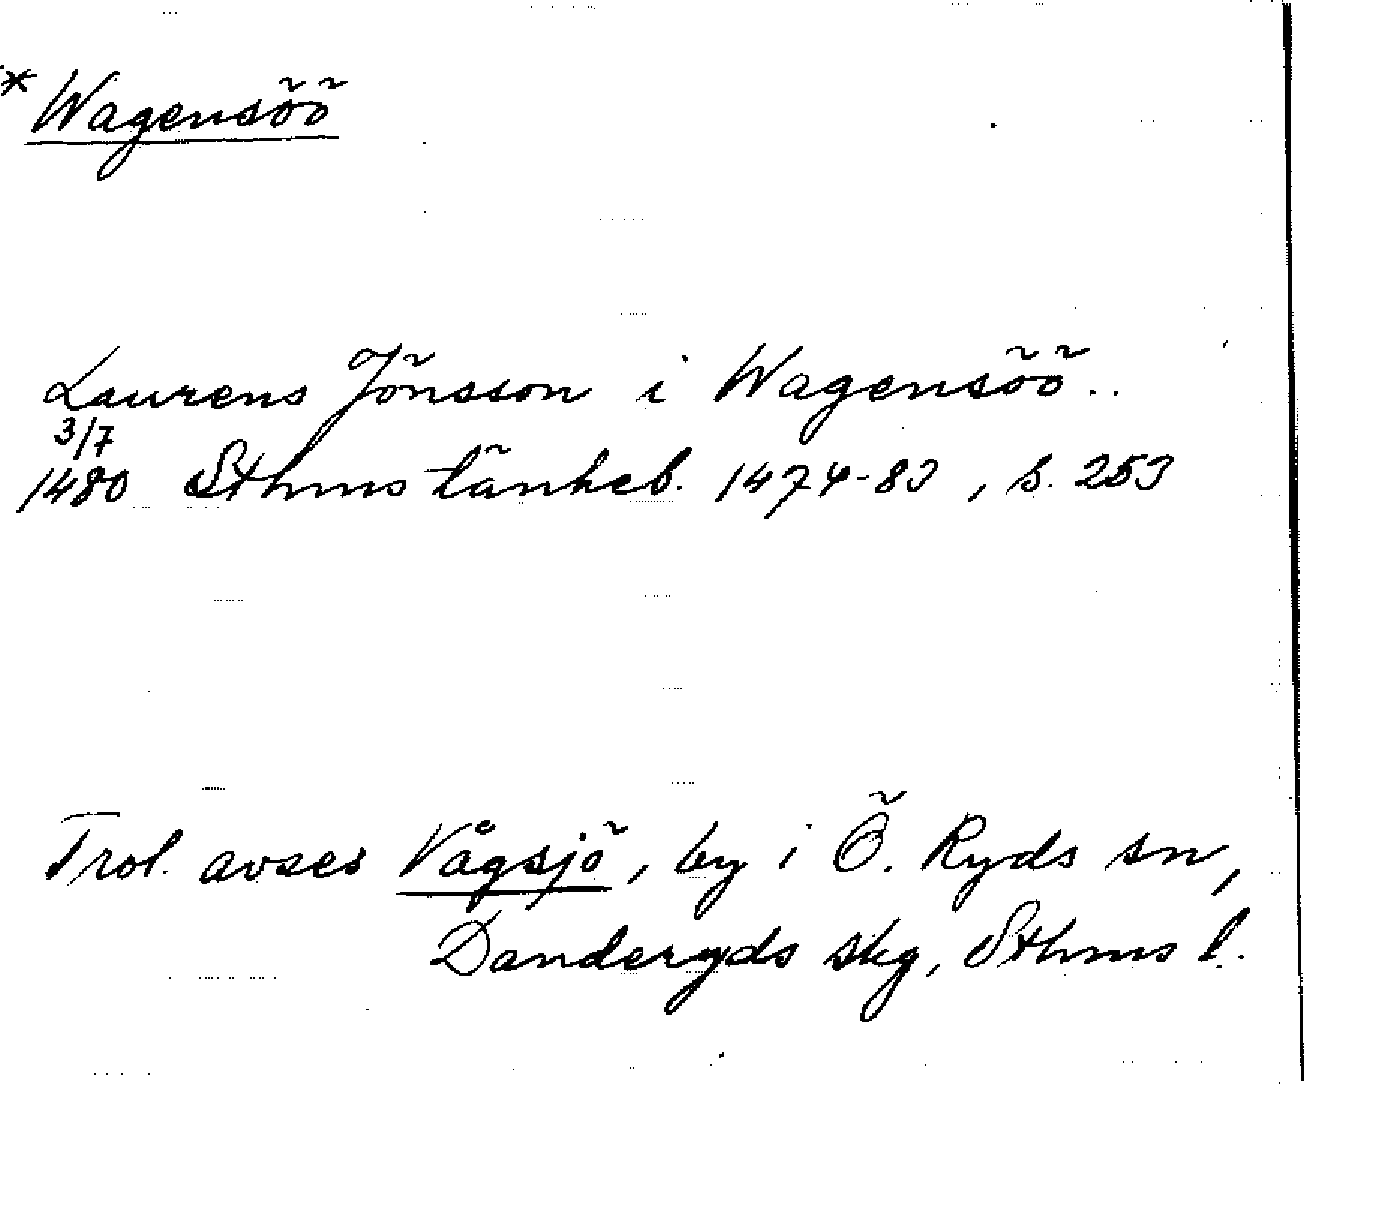 * Wagensöö
Laurens Jönsson i Wagensöö..
3/7
1480 Sthms tänkeb. 1474-83, s. 253
Trol. avses Vågsjö, by i Ö. Ryds sn,
Danderyds skg, Sthms l.